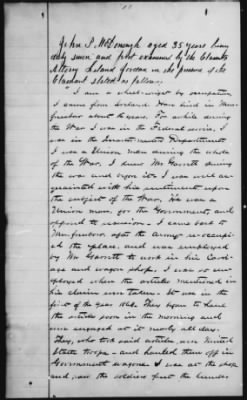 John S. McDonough aged 35 years being
duly sworn and first examined by the Claimts
Attorney Leland Jordan in the presence of the
Claimant stated as follows:
"I am a wheel-wright by occupation
I came from Ireland. Have lived in Mur-
freesboro about 14 years. For awhile during
the War I was in the Federal service, I
was in the Quartermasters Department
I was a Union man during the whole
of the War. I knew Mr Garrett during
the war and before it. I was well ac-
quainted with his sentiments upon
the subject of the War. He was a
Union man, for the Government and
opposed to secession. I came back to
Murfreesboro after the army re-occupi-
ed the place, and was employed
by Mr Garrett to work in his Carri-
age and wagon shop. I was so em-
ployed when the articles mentioned in
his claim were taken. It was in the
first of the year 1863. They began to haul
the articles soon in the morning and
were engaged at it nearly all day.
They, who took said articles, were United
States troops - and hauled them off in
Government wagons. I was at the shop
and saw the soldiers put the lumber